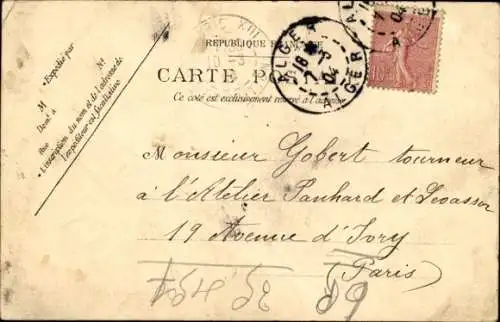 RÉPUBLIQUE FRANÇAISE
CARTE POSTALE
Ce côté est exclusivement réservé à l'adresse
Expédié par
M
M
Demt à
Rue
L'inscription du nom et de l'adresse de
l'expéditeur est facultative.
ALGER
ALGER
04
04
Monsieur Gobert tourneur
à l'Atelier Panhard et Levassor
19 Avenue d'Ivry
(Paris)